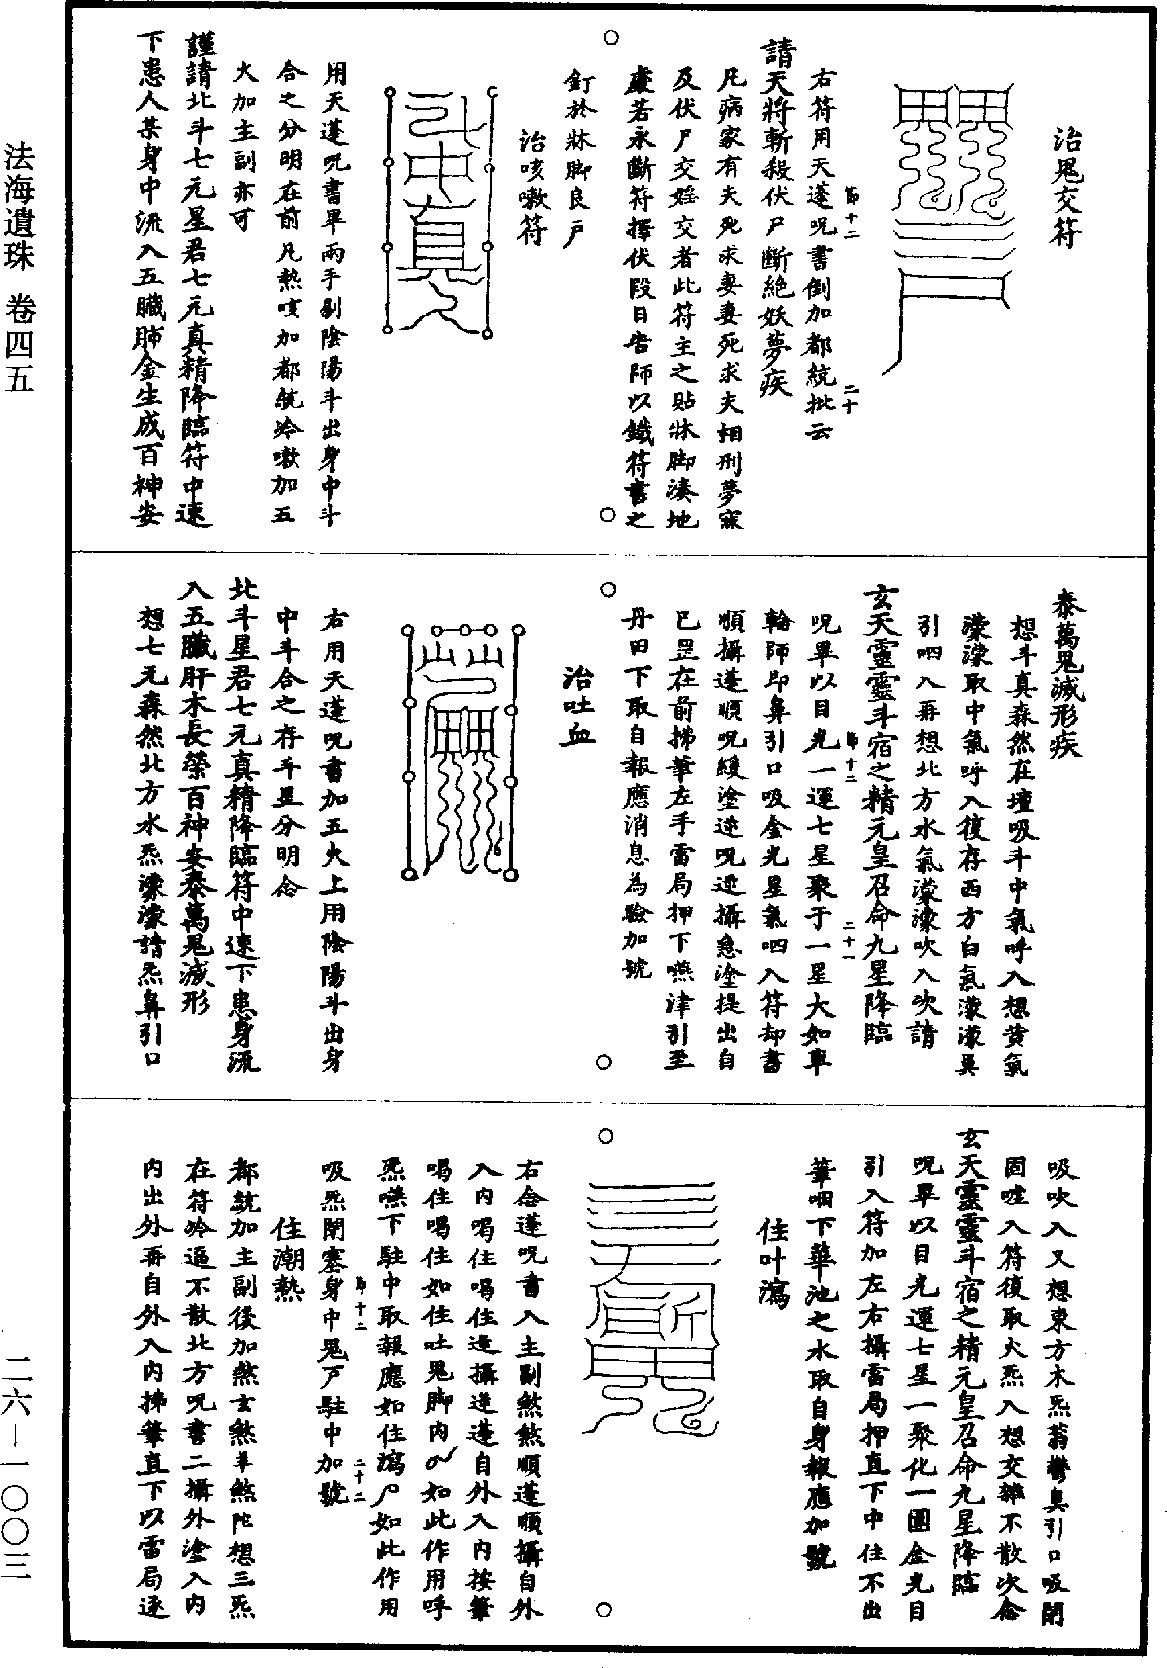 法海遺珠 卷四五
二六—一〇〇三
治鬼交符
右符用天蓬呪書倒加都統批云
請天將斬殺伏尸斷絕妖夢疾
凡病家有夫死求妻妻死求夫相刑夢寐
及伏尸交婬交者此符主之貼牀脚湊地
處若永斷符擇伏段日告師以鐵符書之
釘於牀脚良尸
治咳嗽符
用天蓬呪書畢兩手剔陰陽斗出身中斗
合之分明在前凡熱咳加都統冷嗽加五
火加主副亦可
謹請北斗七元星君七元真精降臨符中速
下患人某身中流入五臟肺金生成百神安
泰萬鬼滅形疾
想斗真森然在壇吸斗中氣呼入想黄氣
濛濛取中氣呼入復存西方白氣濛濛鼻
引呬入再想北方水氣濛濛吹入吹請
玄天靈靈斗宿之精元皇召命九星降臨
呪畢以目光一運七星聚于一星大如車
輪師即鼻引口吸金光星氣呬入符却書
順攝蓬順呪緩塗逆呪逆攝急塗提出自
已罡在前拂華左手雷局押下嚥津引至
丹田下取自報應消息為驗加號
治吐血
右用天蓬呪書加五火上用陰陽斗出身
中斗合之存斗星分明念
北斗星君七元真精降臨符中速下患身流
入五臟肝木長榮百神安泰萬鬼滅形
想七元森然北方水炁濛濛請炁鼻引口
吸吹入又想東方木炁蓊鬱鼻引口吸閉
固噓入符復取火炁入想交雜不散次念
玄天靈靈斗宿之精元皇召命九星降臨
呪畢以目光運七星一聚化一團金光目
引入符加左右攝雷局押直下中住不出
華咽下華池之水取自身報應加號
住吐瀉
右念蓬呪書入主副煞煞順蓬順攝自外
入內喝住喝住逆攝逆蓬自外入內按筆
喝住喝住如住吐鬼脚內如此作用呼
炁嚥下駐中取報應如住瀉尸如此作用
吸炁閉塞身中鬼尸駐中加號
住潮熱
都統加主副後加煞玄煞羊煞陀想三炁
在符冷逼不散北方呪書二攝外塗入內
內出外再自外入內拂筆直下以雷局逐